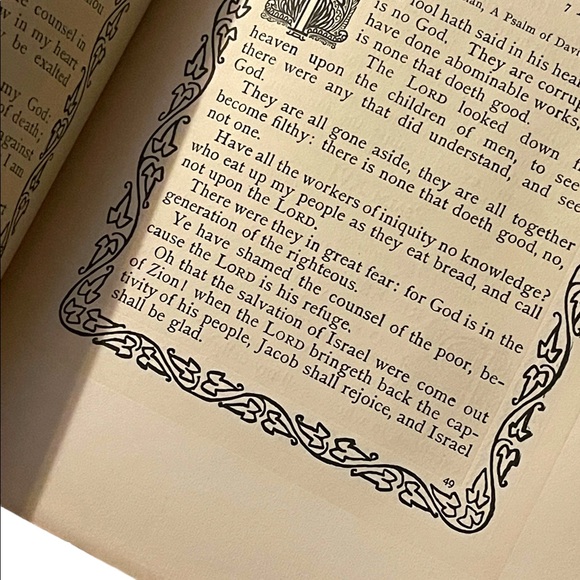 counsel in
in my heart
be exalted
my God:
of death:
against
I am
7
A Psalm of Dav
fool hath said in his hea
is no God. They are corrup
have done abominable works
is none that doeth good.
The LORD looked down
heaven upon the children of men, to see
there were any that did understand, and see
God.
They are all gone aside, they are all together
become filthy: there is none that doeth good, no,
not one.
Have all the workers of iniquity no knowledge?
who eat up my people as they eat bread, and call
not upon the LORD.
There were they in great fear: for God is in the
generation of the righteous.
Ye have shamed the counsel of the poor, be-
cause the LORD is his refuge.
Oh that the salvation of Israel were come out
of Zion! when the LORD bringeth back the cap-
tivity of his people, Jacob shall rejoice, and Israel
shall be glad.
49